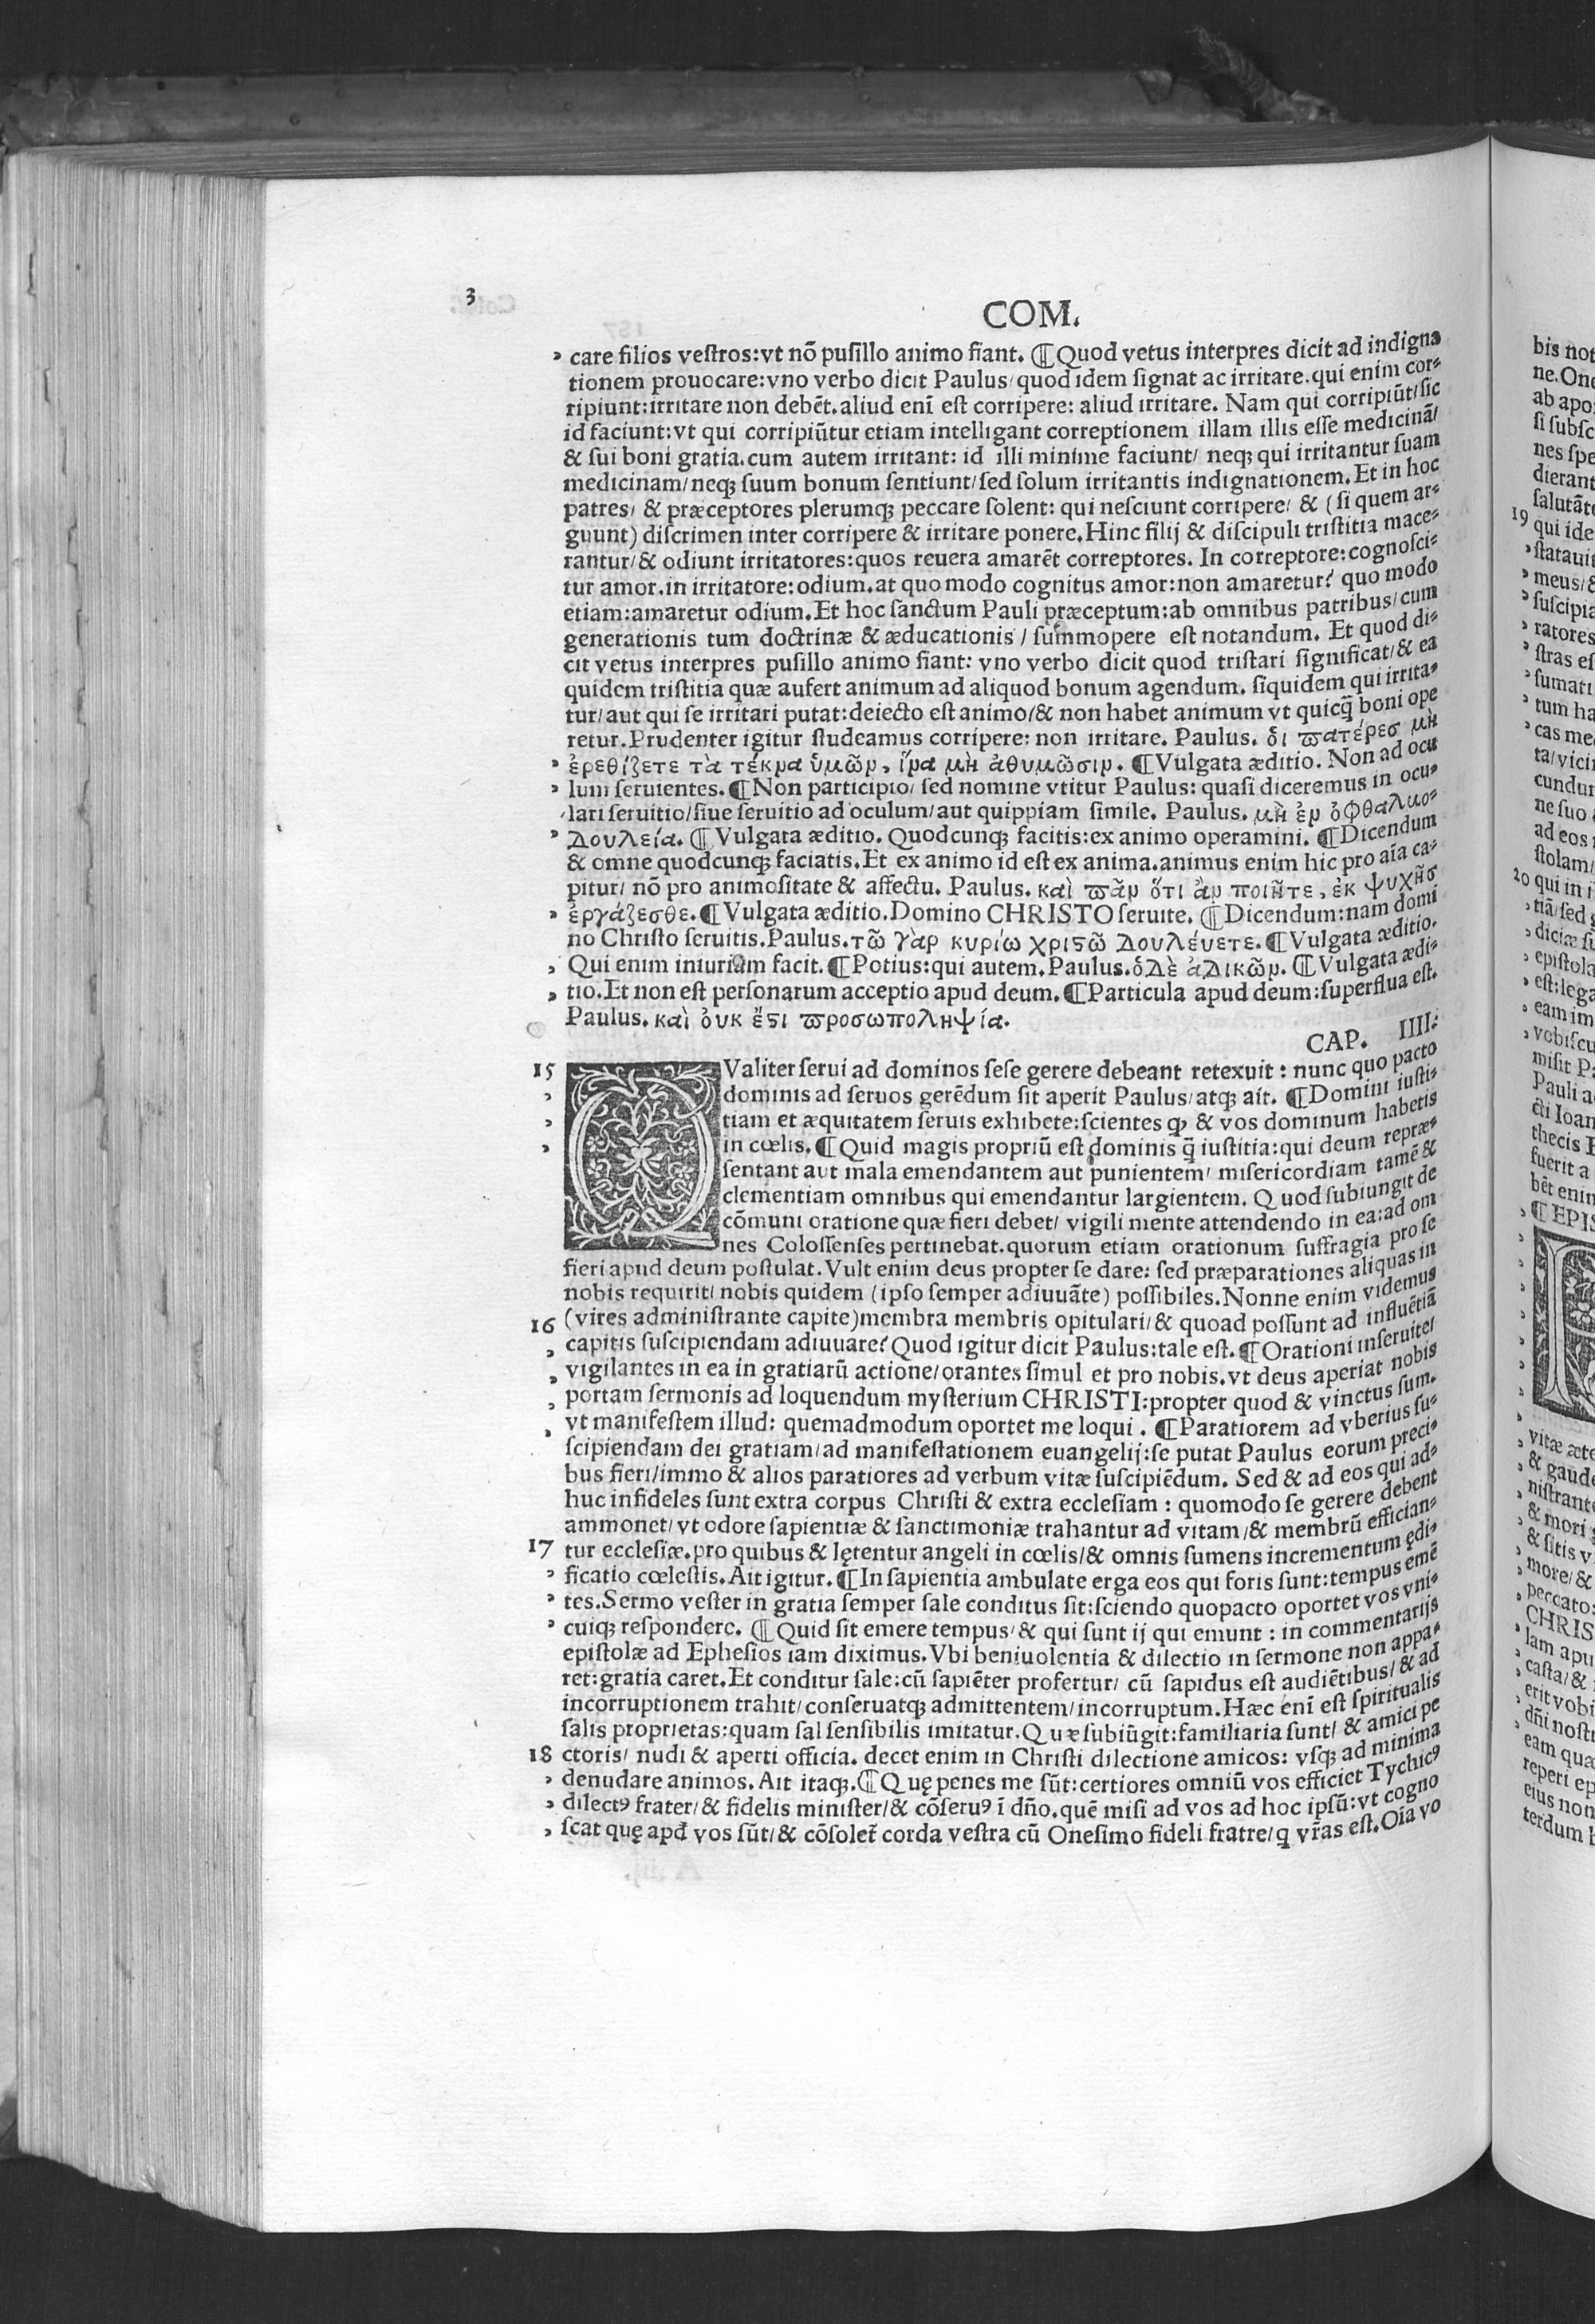 3
COM.
care filios vestros:vt nõ pusillo animo fiant. ¶Quod vetus interpres dicit ad indigna
tionem prouocare:vno verbo dicit Paulus/quod idem signat ac irritare.qui enim cor-
ripiunt:irritare non debẽt.aliud enĩ est corripere: aliud irritare. Nam qui corripiũt/sic
id faciunt:vt qui corripiũtur etiam intelligant correptionem illam illis esse medicinã/
& sui boni gratia.cum autem irritant: id illi minime faciunt/ neq; qui irritantur suam
medicinam/neq; suum bonum sentiunt/sed solum irritantis indignationem.Et in hoc
patres/ & præceptores plerumq; peccare solent: qui nesciunt corripere/ & (si quem ar-
guunt) discrimen inter corripere & irritare ponere.Hinc filij & discipuli tristitia mace-
rantur/& odiunt irritatores:quos reuera amarẽt correptores. In correptore:cognosci-
tur amor.in irritatore:odium.at quo modo cognitus amor:non amaretur? quo modo
etiam:amaretur odium.Et hoc sanctum Pauli præceptum:ab omnibus patribus/cum
generationis tum doctrinæ & æducationis/ summopere est notandum. Et quod di-
cit vetus interpres pusillo animo fiant: vno verbo dicit quod tristari significat/& ea
quidem tristitia quæ aufert animum ad aliquod bonum agendum. siquidem qui irrita-
tur/aut qui se irritari putat:deiecto est animo/& non habet animum vt quicq̃ boni ope
retur.Prudenter igitur studeamus corripere: non irritare. Paulus. ὁι πατέρεσ μὴ
ἐρεθίζετε τὰ τέκνα ὑμῶν, ἵνα μὴ ἀθυμῶσιν. ¶Vulgata æditio. Non ad ocu
lum seruientes.¶Non participio/ sed nomine vtitur Paulus: quasi diceremus in ocu-
lari seruitio/siue seruitio ad oculum/aut quippiam simile. Paulus. μὴ ἐν ὀφθαλμο-
δουλεία. ¶Vulgata æditio. Quodcunq; facitis:ex animo operamini. ¶Dicendum
& omne quodcunq; faciatis.Et ex animo id est ex anima.animus enim hic pro aĩa ca-
pitur/ nõ pro animositate & affectu. Paulus. καὶ πᾶν ὅτι ἂν ποιῆτε, ἐκ ψυχῆσ
ἐργάζεσθε.¶Vulgata æditio.Domino CHRISTO seruite. ¶Dicendum:nam domi
no Christo seruitis.Paulus.τῶ γὰρ κυρίω χριϛῶ δουλέυετε.¶Vulgata æditio.
Qui enim iniuriam facit.¶Potius:qui autem.Paulus.ὁδὲ ἀδικῶν. ¶Vulgata ædi-
tio.Et non est personarum acceptio apud deum.¶Particula apud deum:superflua est.
Paulus. καὶ ὀυκ ἔϛι προσωποληψία.
CAP. IIII.
15 QValiter serui ad dominos sese gerere debeant retexuit : nunc quo pacto
dominis ad seruos gerẽdum sit aperit Paulus/atq; ait. ¶Domini iusti-
tiam et æquitatem seruis exhibete:scientes q; & vos dominum habetis
in cœlis.¶Quid magis propriũ est dominis q̃ iustitia:qui deum repræ-
sentant aut mala emendantem aut punientem/ misericordiam tamẽ &
clementiam omnibus qui emendantur largientem. Quod subiungit de
cõmuni oratione quæ fieri debet/ vigili mente attendendo in ea:ad om
nes Colossenses pertinebat.quorum etiam orationum suffragia pro se
fieri apud deum postulat.Vult enim deus propter se dare: sed præparationes aliquas in
nobis requirit/ nobis quidem (ipso semper adiuuãte) possibiles.Nonne enim videmus
16 (vires administrante capite)membra membris opitulari/& quoad possunt ad influẽtiã
capitis suscipiendam adiuuare?Quod igitur dicit Paulus:tale est.¶Orationi inseruite/
vigilantes in ea in gratiarũ actione/orantes simul et pro nobis.vt deus aperiat nobis
portam sermonis ad loquendum mysterium CHRISTI:propter quod & vinctus sum.
vt manifestem illud: quemadmodum oportet me loqui. ¶Paratiorem ad vberius su-
scipiendam dei gratiam/ad manifestationem euangelij:se putat Paulus eorum preci-
bus fieri/immo & alios paratiores ad verbum vitæ suscipiẽdum. Sed & ad eos qui ad-
huc infideles sunt extra corpus Christi & extra ecclesiam : quomodo se gerere debent
ammonet/vt odore sapientiæ & sanctimoniæ trahantur ad vitam/& membrũ effician-
17 tur ecclesiæ.pro quibus & lętentur angeli in cœlis/& omnis sumens incrementum ędi-
ficatio cœlestis.Ait igitur.¶In sapientia ambulate erga eos qui foris sunt:tempus emẽ
tes.Sermo vester in gratia semper sale conditus sit:sciendo quopacto oportet vos vni-
cuiq; respondere. ¶Quid sit emere tempus/& qui sunt ij qui emunt : in commentarijs
epistolæ ad Ephesios iam diximus.Vbi beniuolentia & dilectio in sermone non appa-
ret:gratia caret.Et conditur sale:cũ sapiẽter profertur/ cũ sapidus est audiẽtibus/& ad
incorruptionem trahit/conseruatq; admittentem/incorruptum.Hæc enĩ est spiritualis
salis proprietas:quam sal sensibilis imitatur.Quæ subiũgit:familiaria sunt/ & amici pe
18 ctoris/ nudi & aperti officia. decet enim in Christi dilectione amicos: vsq; ad minima
denudare animos. Ait itaq;.¶Quę penes me sũt:certiores omniũ vos efficiet Tychicꝰ
dilectꝰ frater/& fidelis minister/& cõseruꝰ ĩ dño.quẽ misi ad vos ad hoc ipsũ:vt cogno
scat quę apđ vos sũt/& cõsolet̃ corda vestra cũ Onesimo fideli fratre/q vr̃as est.Oĩa vo